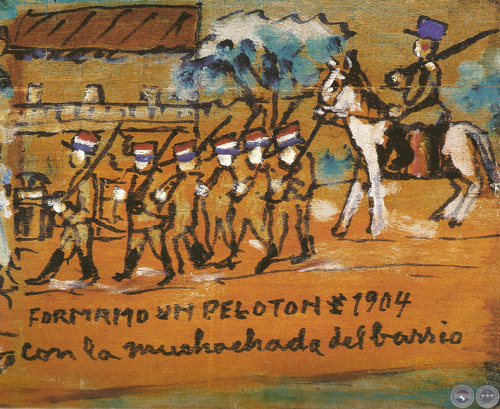 FORMAMO UN PELOTON 1904
con la muchachada del barrio